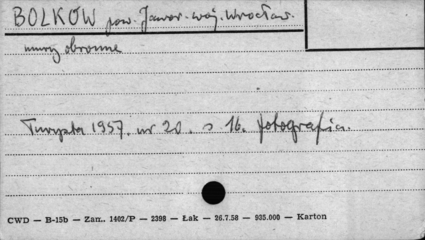 BOLKÓW pow. Jawor. woj. Wrocław.
mury obronne
Turysta 1957. nr 20. s 16. fotografia.
CWD — B-15b — Zam.. 1402/P — 2398 — Łak — 26.7.58 — 935.000 — Karton